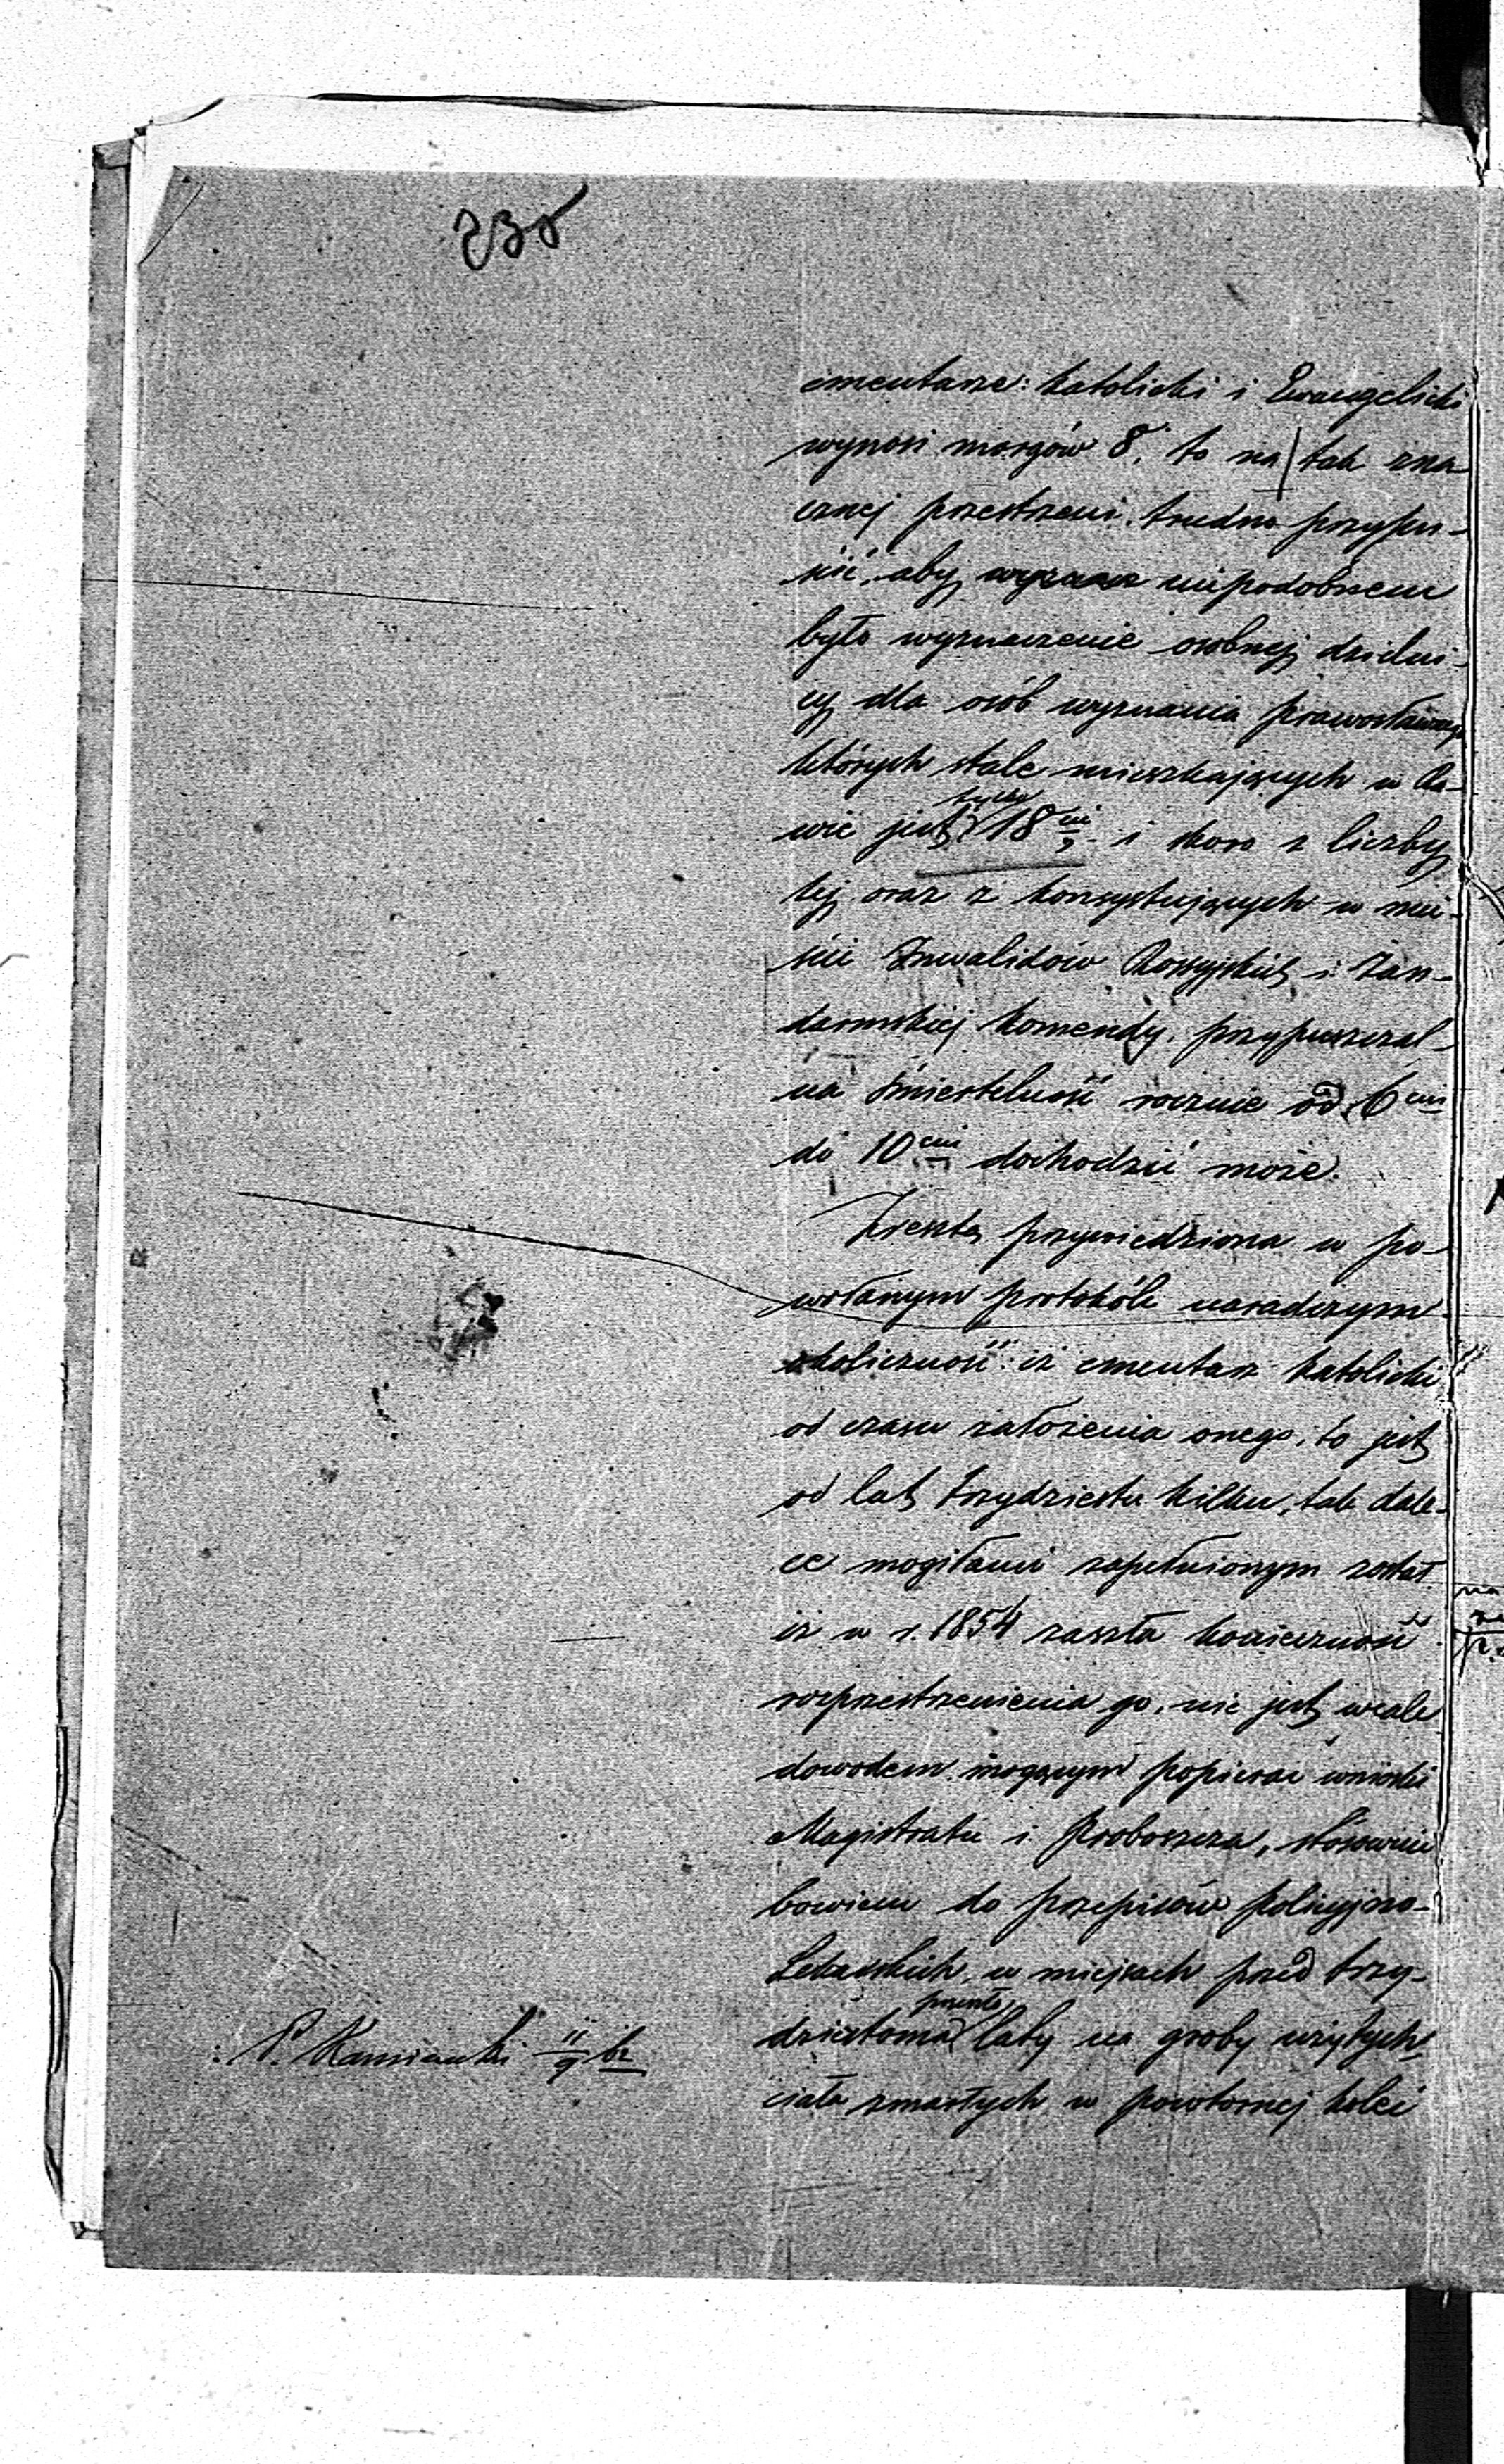 235
cmentarze: katolicki i Ewangelicki
wynosi morgów 8. to na tak zna
cznej przestrzeni. trudno przypu-
ścić, aby niepodobnem
było wyznaczenie osobnej dzielni-
cy dla osób wyznania prawosławnego
których stale mieszkających w Ra-
wie jest tylko 18ci i skoro z liczby
tej oraz z konsystujących w mie-
ście Inwalidów Rossyjskich i Żan-
darmskiej komendy, przypuszczal-
na śmiertelność rocznie od 6ciu
do 10ciu dochodzić może.
Zresztą przywiedziona w po-
wołanym protokóle naradczym
okoliczność: iż cmentarz katolicki
od czasu założenia onego, to jest
od lat trzydziestu kilku, tak dale-
ce mogiłami zapełnionym został
iż w r. 1854 zaszła konieczność
rozprzestrzenienia go, nie jest wcale
dowodem mogącym popierać wnioski
Magistratu i Proboszcza, stósownie
bowiem do przepisów policyjno-
Lekarskich, w miejscach przed trzy-
dziestoma laty na groby użytych,
ciała zmarłych w powtórnej kolei
P. Kamiański 11/9 62